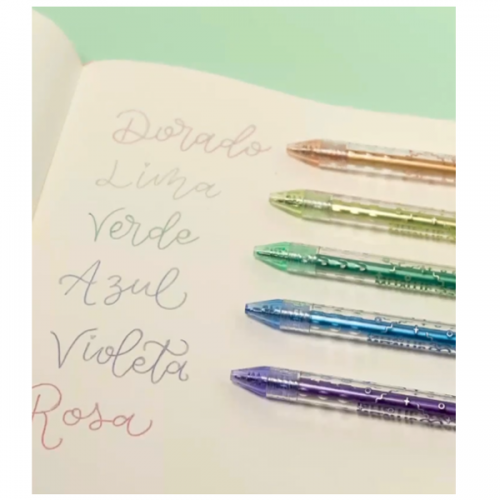 Dorado
Lima
Verde
Azul
Violeta
Rosa